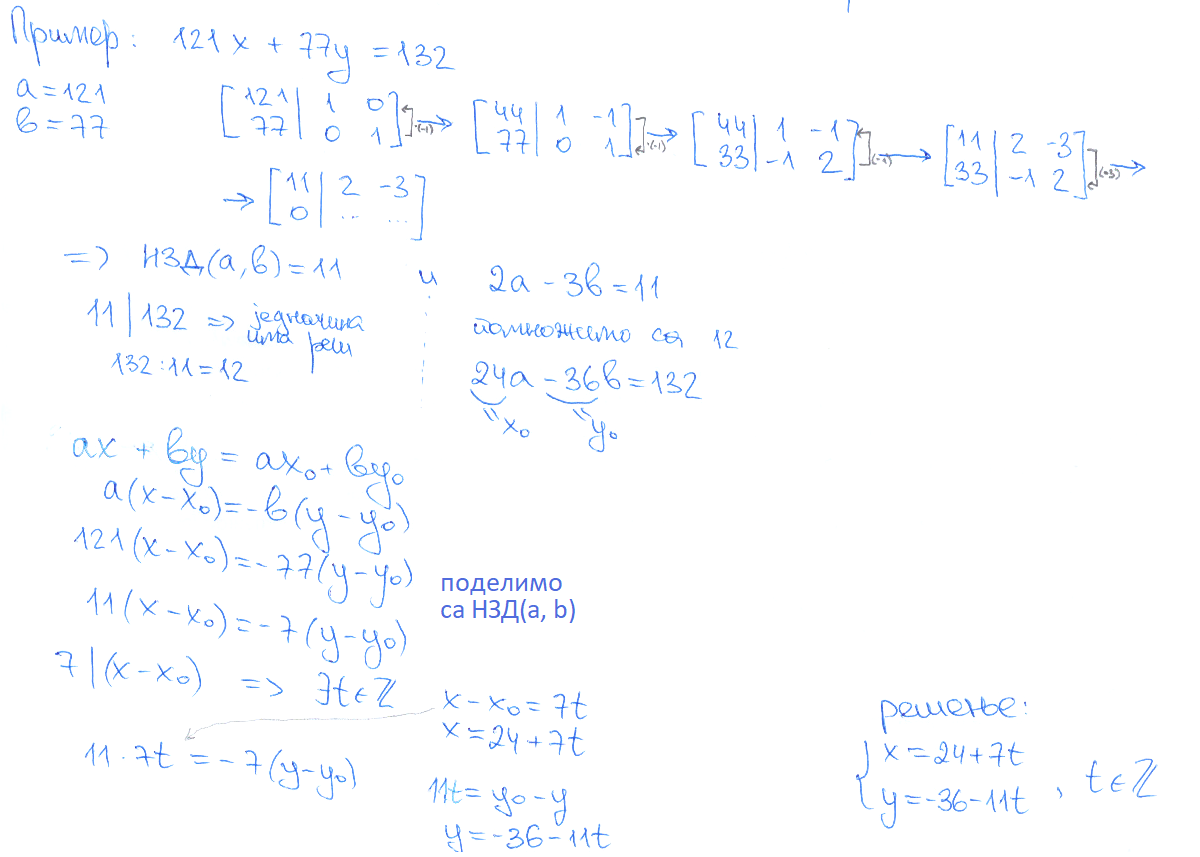 Пример: 121x + 77y = 132
a = 121
b = 77
[121 | 1 0; 77 | 0 1] ·(-1) → [44 | 1 -1; 77 | 0 1] ·(-1) → [44 | 1 -1; 33 | -1 2] (-1) → [11 | 2 -3; 33 | -1 2] (-3) →
→ [11 | 2 -3; 0 | ... ...]
=> НЗД(a, b) = 11 и 2a - 3b = 11
11 | 132 => једначина има реш
132 : 11 = 12
помножимо са 12
24a - 36b = 132
"x₀ "y₀
ax + by = ax₀ + by₀
a(x - x₀) = -b(y - y₀)
121(x - x₀) = -77(y - y₀)
поделимо
са НЗД(a, b)
11(x - x₀) = -7(y - y₀)
7 | (x - x₀) => ∃t∈ℤ
x - x₀ = 7t
x = 24 + 7t
11 · 7t = -7(y - y₀)
11t = y₀ - y
y = -36 - 11t
решење:
{ x = 24 + 7t
y = -36 - 11t , t∈ℤ